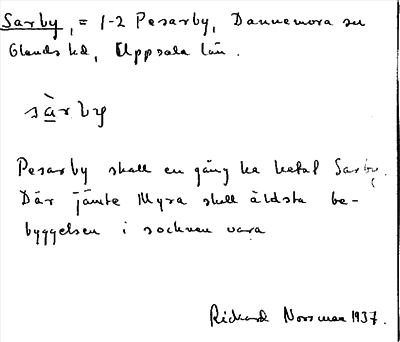 Sarby, = 1-2 Pesarby, Dannemora sn
Olands hd, Uppsala län.
sàrby
Pesarby skall en gång ha hetat Sarby.
Där jämte Myra skall äldsta be-
byggelsen i socknen vara
Rickard Norsman 1937.